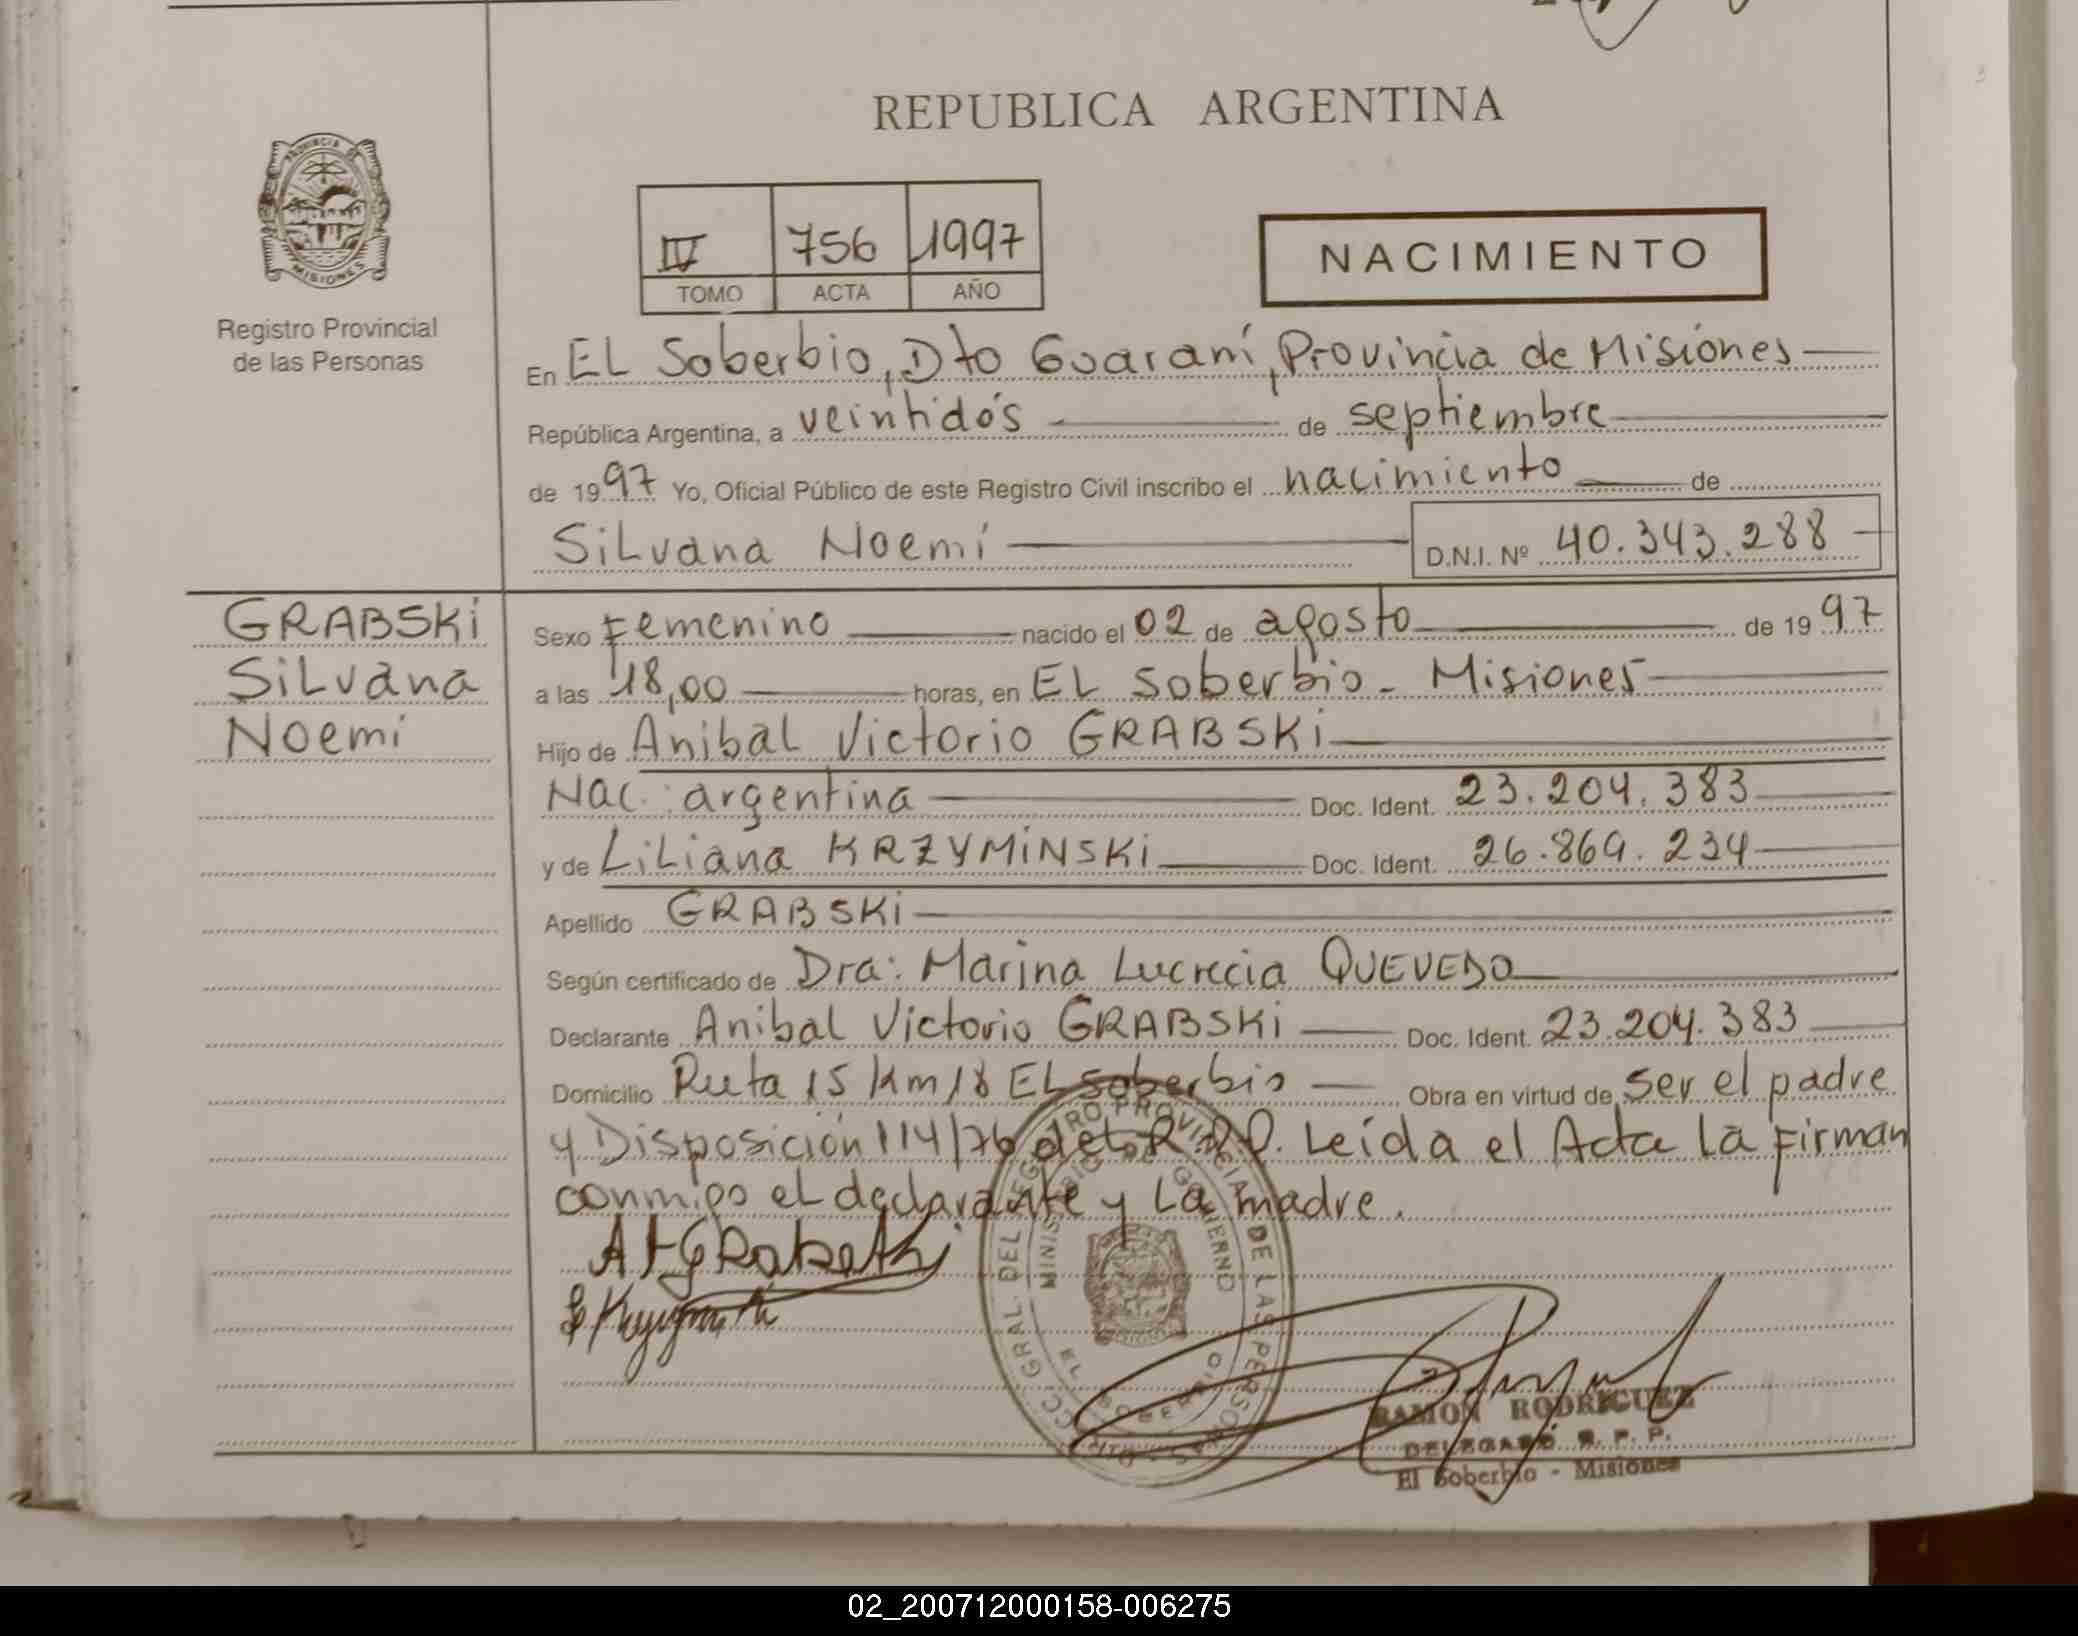 REPUBLICA ARGENTINA
PROVINCIA DE
MISIONES
Registro Provincial
de las Personas
IV 756 1997
TOMO ACTA AÑO
NACIMIENTO
En EL Soberbio, Dto Guaraní, Provincia de Misiones
República Argentina, a veintidós de septiembre
de 1997 Yo, Oficial Público de este Registro Civil inscribo el nacimiento de
Silvana Noemí D.N.I. Nº 40.343.288
GRABSKi
Silvana
Noemí
Sexo Femenino nacido el 02 de agosto de 1997
a las 18,00 horas, en EL Soberbio - Misiones
Hijo de Anibal Victorio GRABSKi
Nac. argentina Doc. Ident. 23.204.383
y de Liliana KRZYMINSKi Doc. Ident. 26.869.234
Apellido GRABSKi
Según certificado de Dra: Marina Lucrecia QUEVEDO
Declarante Anibal Victorio GRABSKi Doc. Ident. 23.204.383
Domicilio Ruta 15 Km 18 EL Soberbio Obra en virtud de ser el padre
y Disposición 114/76 del R.P.P. Leída el Acta la firman
conmigo el declarante y la madre.
REGISTRO PROVINCIAL DE LAS PERSONAS
MINISTERIO DE GOBIERNO
EL SOBERBIO
RAMON RODRIGUEZ
DELEGADO R. P. P.
El Soberbio - Misiones
02_200712000158-006275